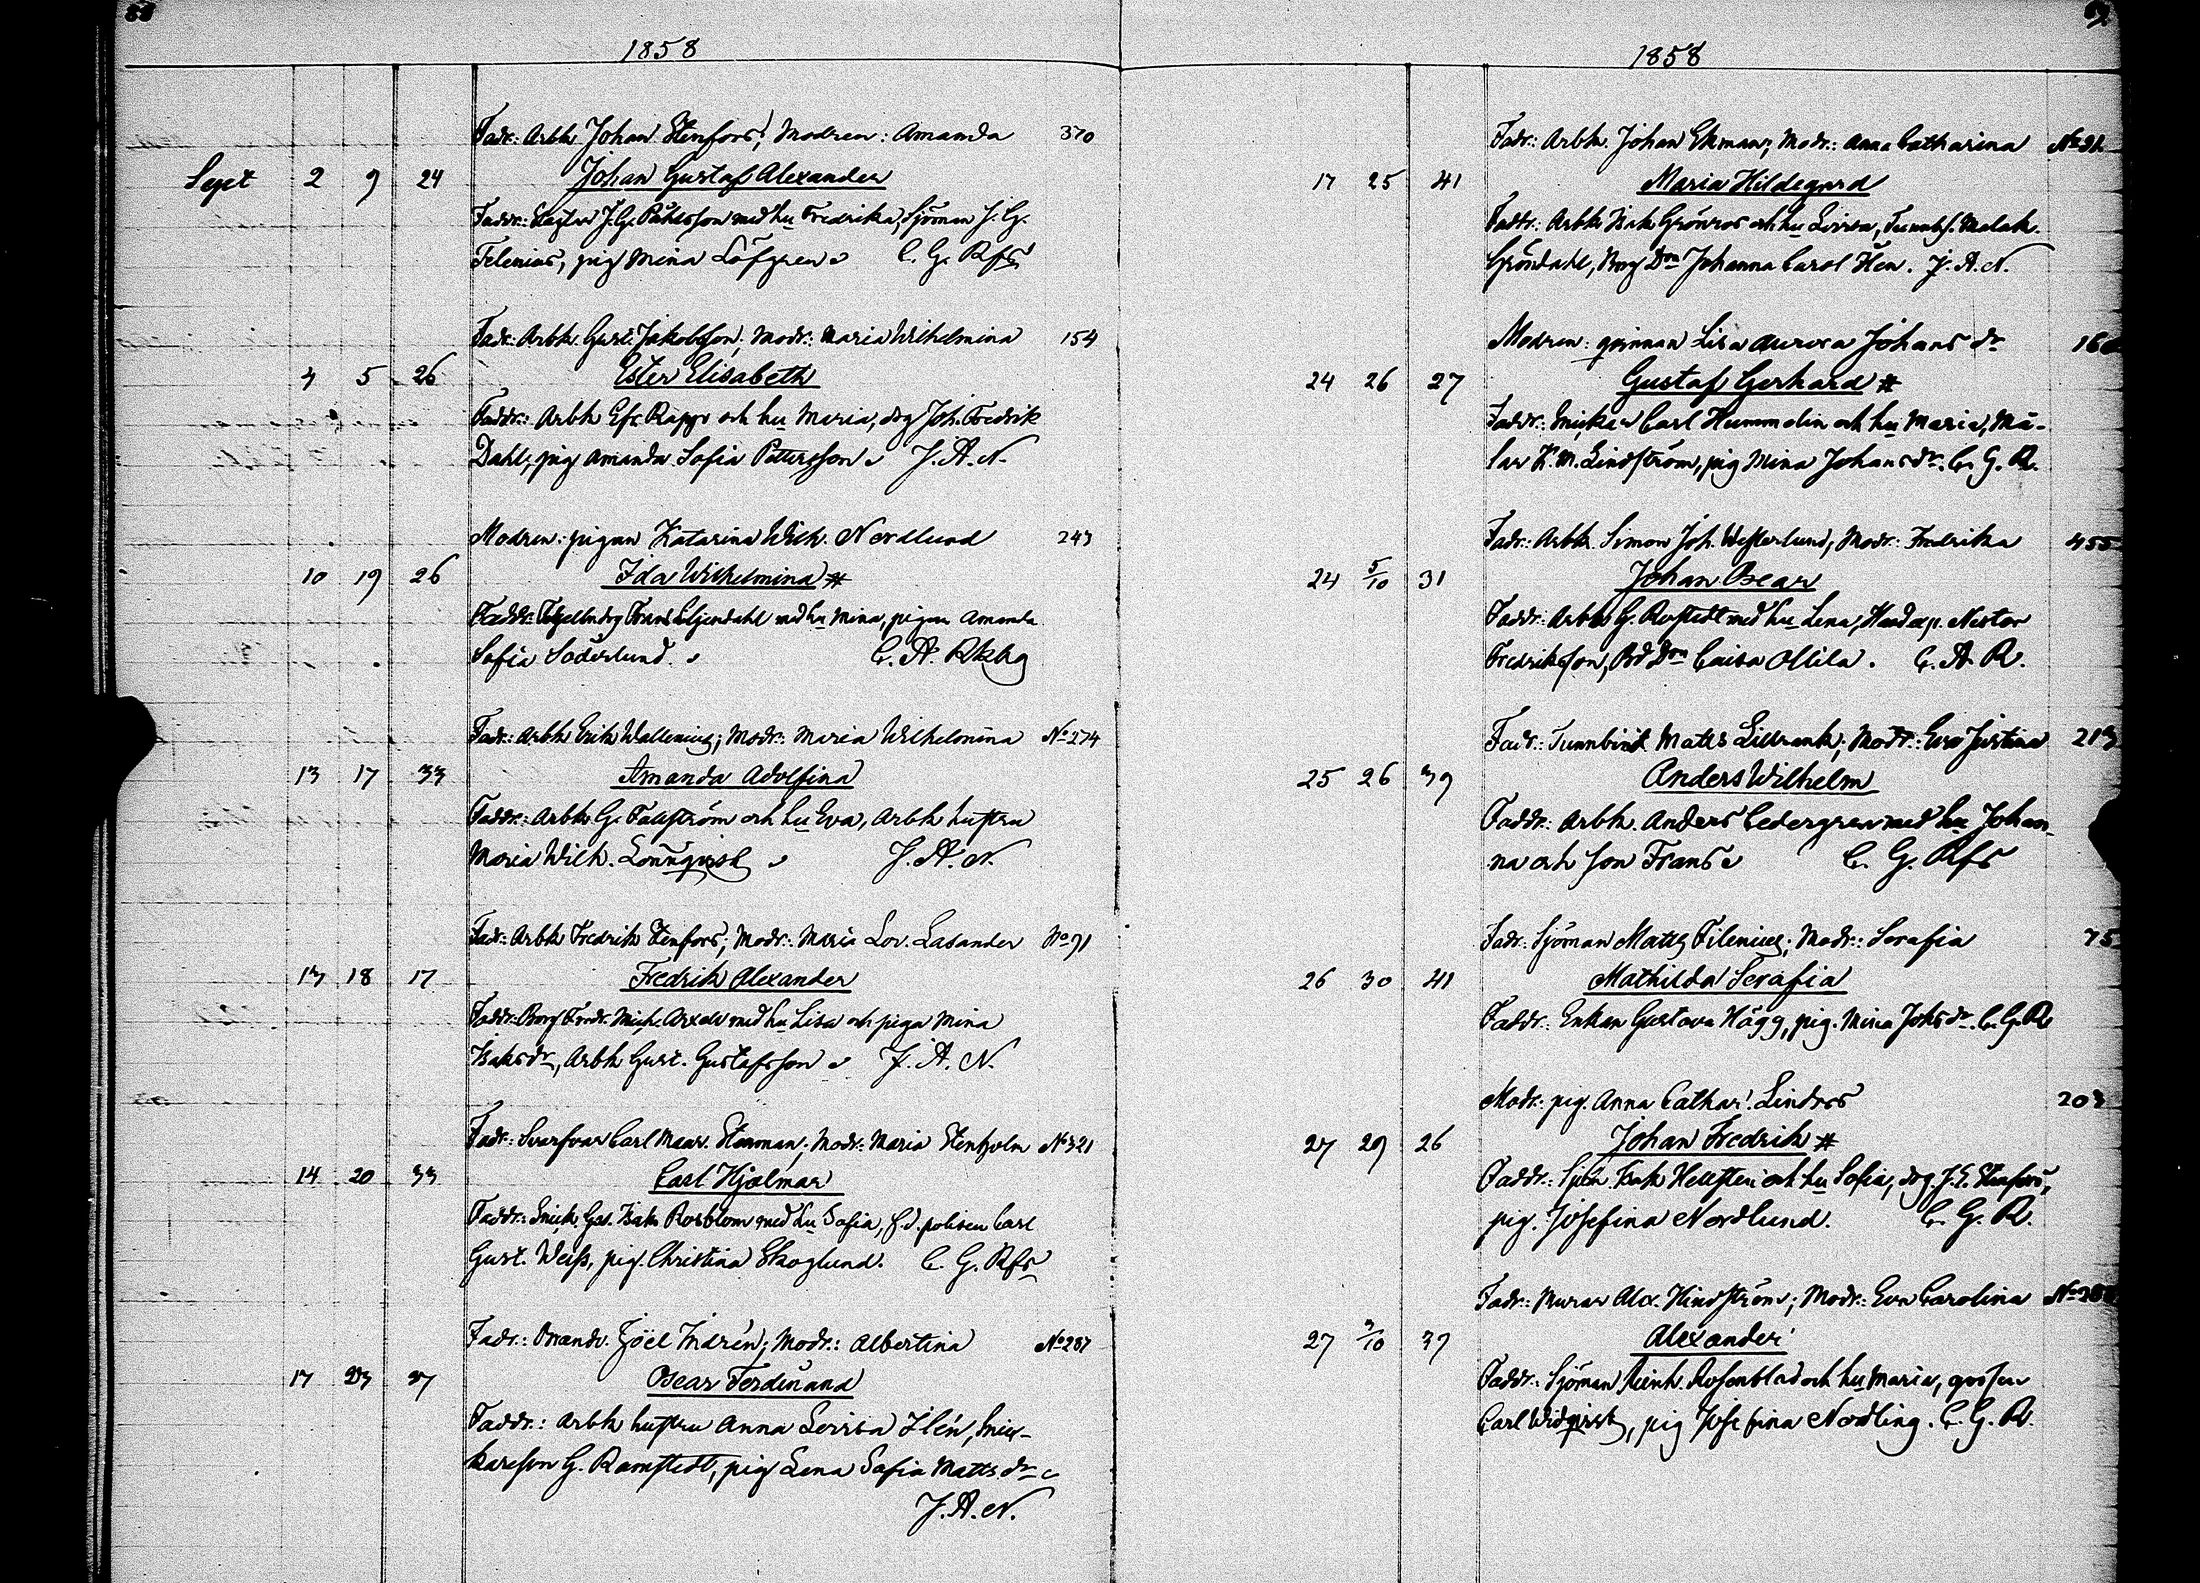 1858
Fadr: Arbk Johan Stenfors; Modren: Amanda 370
Sept 2 9 24 Johan Gustaf Alexander
Faddr: J. G. med hu Fredrika, Sjöman J. G.
Filenius, pig Mina Löfgren C. G. Rfs
Fadr: Arbk Gust. Jakobsson; Modr: Maria Wilhelmina 154
4 5 26 Ester Elisabeth
Faddr: Arbk Efr. Rapp och hu Maria, drg Joh. Fredrik
Dahl, pig Amanda Sofia Pettersson J. A. N.
Modren: pigan Katarina Wilh. Nordlund 243
10 19 26 Ida Wilhelmina #
Faddr: Frans Liljendahl med hu Mina, pigan Amanda
Sofia Söderlund. C. A. Rkbg
Fadr: Arbk Erik Wallenius; Modr: Maria Wilhelmina No 274
13 17 33 Amanda Adolfina
Faddr: Arbk G. Fallström och hu Eva, Arbk hustru
Maria Wilh. Lönnqvist J. A. N.
Fadr: Arbk Fredrik Stenfors; Modr: Maria Lov. Lasander No 91
13 18 17 Fredrik Alexander
Faddr: Borg Fredr. Mich. med hu Lisa och piga Mina
Isaksdr, Arbk Gust. Gustafsson J. A. N.
Fadr: Svarfvar Carl Maur. Stenman; Modr: Maria Stenholm No 321
14 20 33 Carl Hjalmar
Faddr: Snick. Ges. Isak Rosblom med hu Sofia, f.d. polisen Carl
Gust. Weiss, pig. Christina Skoglund. C. G. Rfs
Fadr: Joel Indrén; Modr: Albertina No 287
17 23 27 Oscar Ferdinand
Faddr: Arbk hustru Anna Lovisa Ilén, Snic-
kareson G. Ramstedt, pig Lena Sofia Mattsdr
J. A. N.
1858
Fadr: Arbk. Johan Ekman; Modr: Anna Catharina
17 25 41 Maria Hildegard
Faddr: Arbk Isak Grönros och hu Lovisa, Tunnb. Malak.
Gröndahl, Borg Drn Johanna Carol J. A. N.
Modren: qvinnan Lisa Aurora Johansdr
24 26 27 Gustaf Gerhard #
Faddr: Snickar Carl Hummelin och hu Maria, Må-
lar K. M. Lindström, pig Mina Johansdr. C. G. R.
Fadr: Arbk. Simon Joh. Westerlund; Modr: Fredrika 455
24 5/10 31 Johan Oscar
Faddr: Arbk G. Rofstedt med hu Lena, Nestor
Fredriksson, Drn Caisa Ollila. C. A. R.
Fadr: Tunnbind. Matts Lillrank; Modr: Eva Justina 213
25 26 39 Anders Wilhelm
Faddr: Arbk. Anders Cedergren med hu Johan-
na och son Frans C. G. Rfs
Fadr: Sjöman Matts Filenius; Modr: Serafia 75
26 30 41 Mathilda Serafia
Faddr: Enkan Gustava Hägg, pig. Mina Johsdr. C. G. R
Modr: pig. Anna Cathar. Lindros 203
27 29 26 Johan Fredrik #
Faddr: Isak Hellsten och hu Sofia, drg. J. E. Stenfors,
pig. Josefina Nordlund. C. G. R.
Fadr: Murar Alex. Hindström; Modr: Eva Carolina
27 3/10 37 Alexander
Faddr: Sjöman Reinh. Rosenblad och hu Maria, gossen
Carl Widqvist, pig Josefina Nordling. C. G. R.